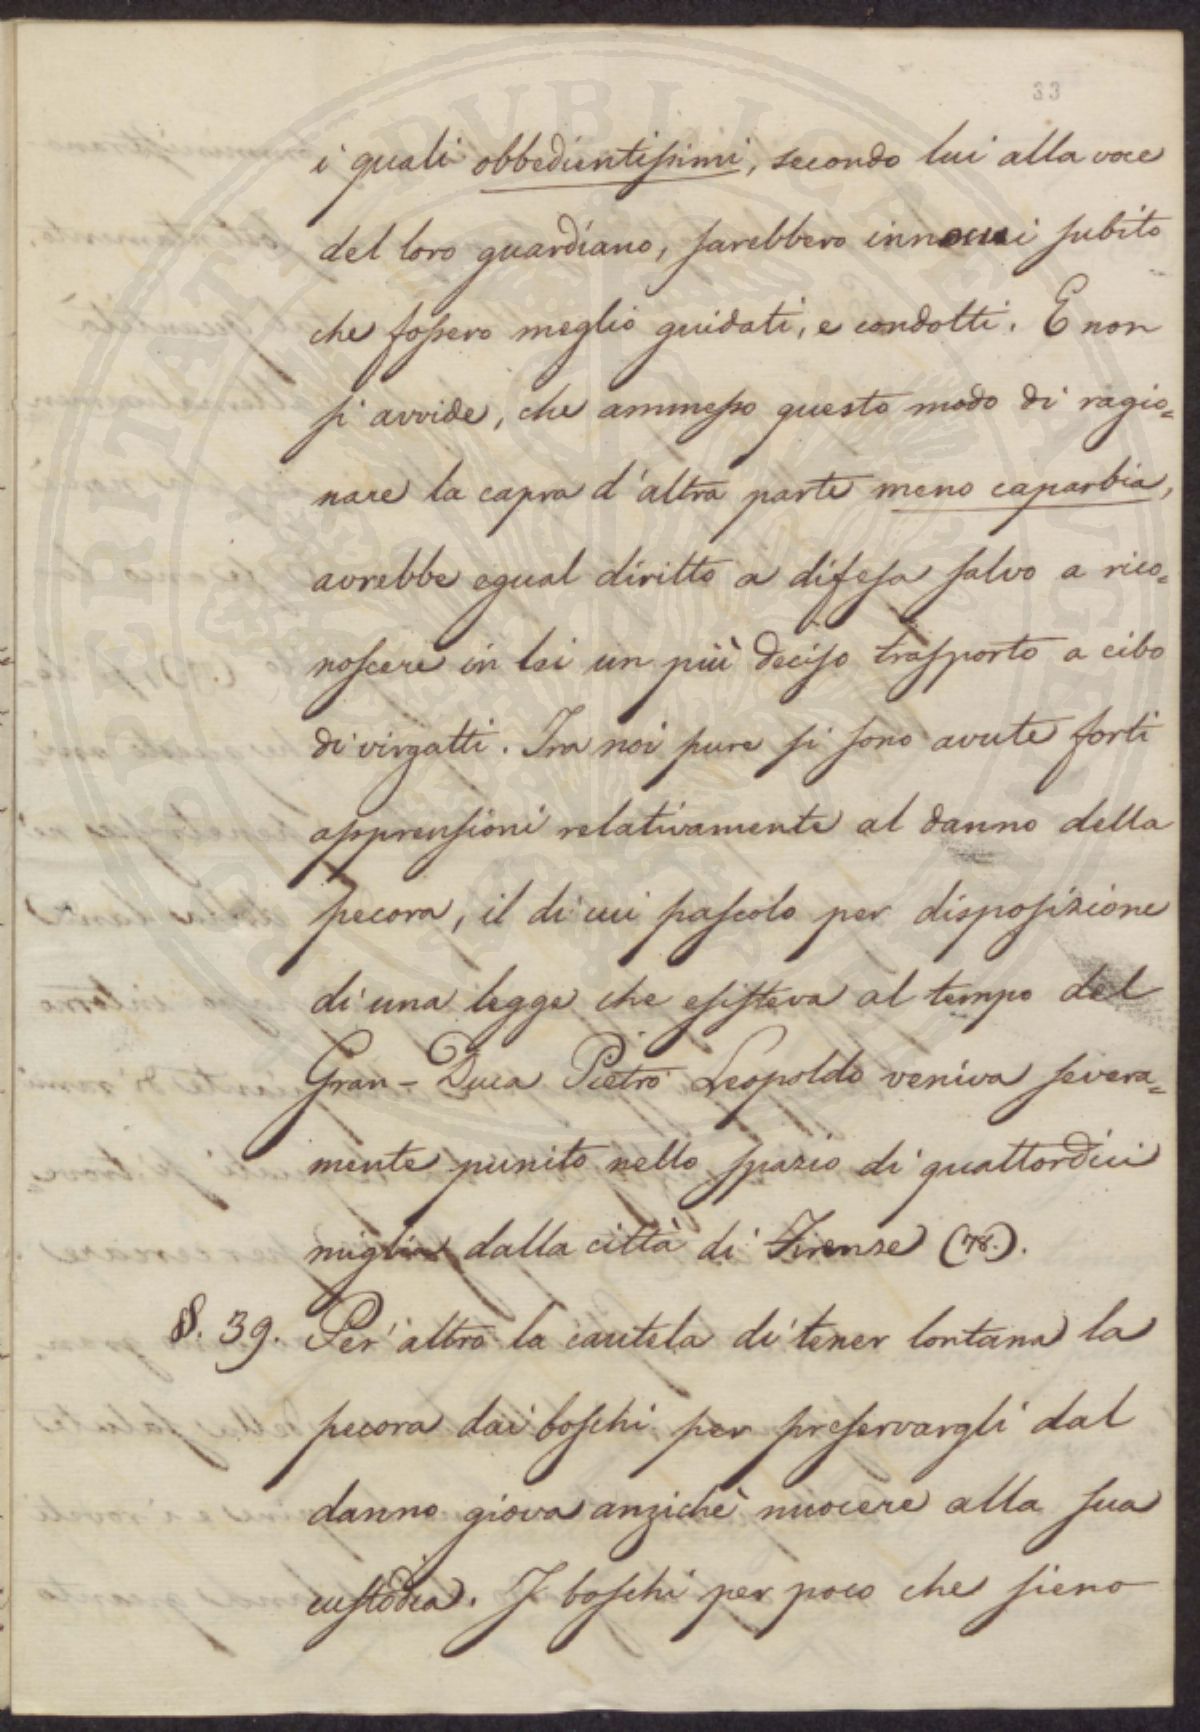 33
i quali obbedientissimi, secondo lui alla voce
del loro guardiano, sarebbero innocui subito
che fossero meglio guidati, e condotti. E non
si avvide, che ammesso questo modo di ragio=
nare la capra d'altra parte meno caparbia,
avrebbe egual diritto a difesa salvo a rico=
noscere in lei un più deciso trasporto a cibo
di virgatti. Tra noi pure si sono avute forti
apprensioni relativamente al danno della
pecora, il di cui pascolo per disposizione
di una legge che esisteva al tempo del
Gran-Duca Pietro Leopoldo veniva severa=
mente punito nello spazio di quattordici
miglia dalla città di Firenze (78.).
§. 39. Per altro la cautela di tener lontana la
pecora dai boschi per preservargli dal
danno giova anzichè nuocere alla sua
custodia. I boschi per poco che sieno